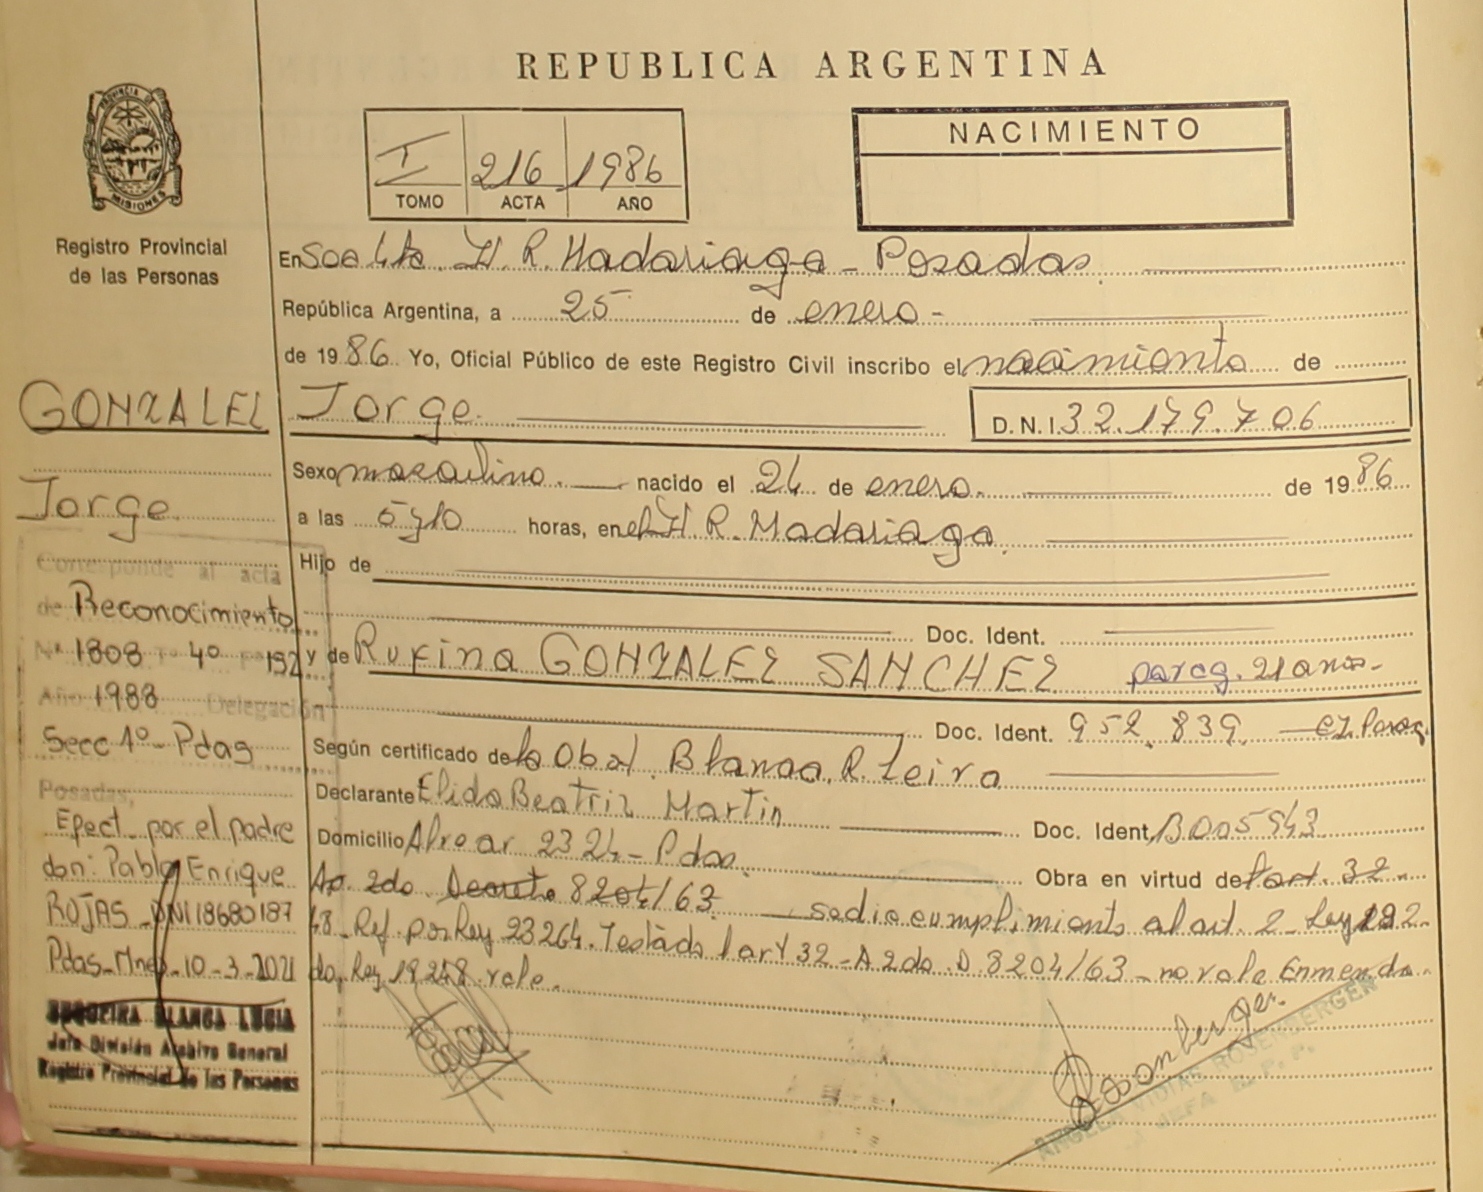 REPUBLICA ARGENTINA
PROVINCIA DE
MISIONES
Registro Provincial
de las Personas
I 216 1986
TOMO ACTA AÑO
NACIMIENTO
En H. R. Madariaga - Posadas
República Argentina, a 25 de enero -
de 1986 Yo, Oficial Público de este Registro Civil inscribo el nacimiento de
GONZALEZ Jorge D.N.I. 32.179.706
Sexo masculino. nacido el 24 de enero. de 1986
Jorge
a las 5y10 horas, en el H. R. Madariaga
Hijo de
Doc. Ident.
y de Rufina GONZALEZ SANCHEZ parag. 21 años-
Doc. Ident. 952.839
Según certificado de la Obst. Blanca R. Leiva
Declarante Elida Beatriz Martin Doc. Ident. 
Domicilio Alvear 2324 - Pdas. Obra en virtud del art. 32-
Ap. 2do. Decreto 8204/63 se dio cumplimiento al art. 2 - Ley 192
48 - Ref. por Ley 23264. Testado 1 art 32 - A 2do. D 8204/63 - no vale Enmenda
do, Ley 19248 vale.
Corresponde al acta
de Reconocimiento
Nº 1808 Tº 4º 192
Año 1988 Delegación
Secc 1º - Pdas
Posadas,
Efect. por el padre
don: Pablo Enrique
ROJAS - DNI 18680187
Pdas - Mnes - 10-3-2021
BLANCA LUCIA
Jefa División Archivo General
Registro Provincial de las Personas
Rosenberger
ROSENBERGER